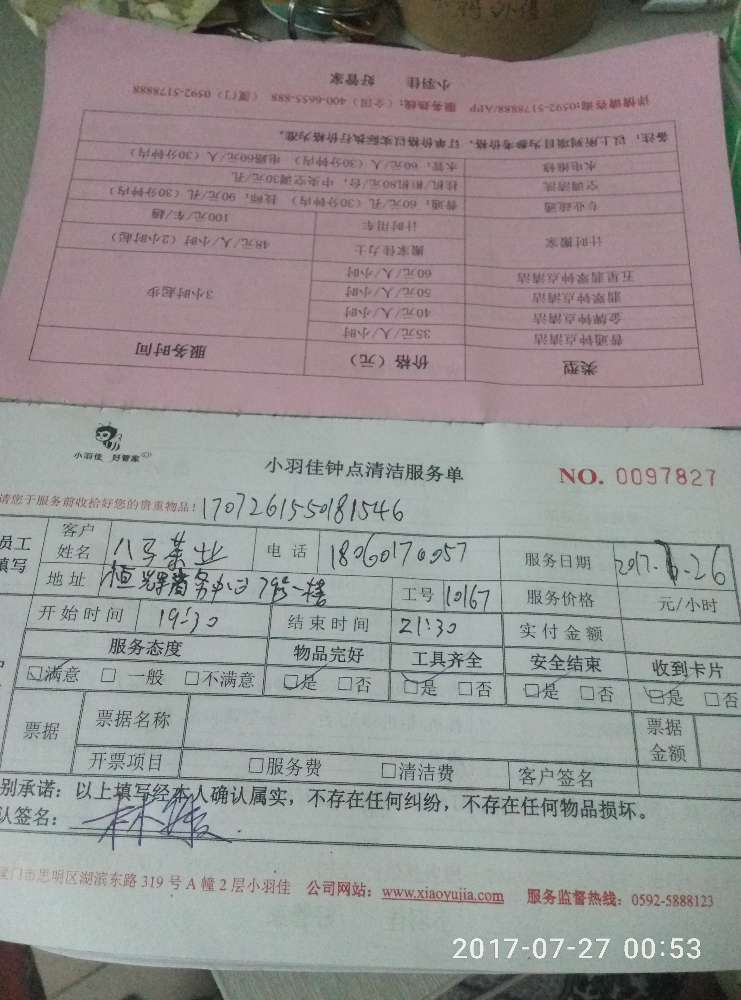 小羽佳 好管家
详情请咨询:0592-5178888/APP 服务热线:(全国)400-6655-888 (厦门)0592-5178888
备注:以上所列项目为参考价格,订单价格以实际执行价格为准。
水电维修 水管:60元/人(30分钟内) 电路60元/人(30分钟内)
空调清洗 挂机/柜机80元/台,中央空调30元/孔
专业疏通 普通:60元/孔(30分钟内) 技师:90元/孔(30分钟内)
计时搬家 计时用车 100元/车/趟
搬家佳力士 48元/人/小时(2小时起)
五星翡翠钟点清洁 60元/人/小时
翡翠钟点清洁 50元/人/小时 3小时起步
金牌钟点清洁 40元/人/小时
普通钟点清洁 35元/人/小时
类型 价格(元) 服务时间
小羽佳 好管家
小羽佳钟点清洁服务单 NO. 0097827
请您于服务前收拾好您的贵重物品! 1707261550181546
员工填写 客户姓名 八马茶业 电话 18060170057 服务日期 2017.7.26
地址 恒辉商务中心79号一楼 工号 10167 服务价格 元/小时
开始时间 19:30 结束时间 21:30 实付金额
服务态度 物品完好 工具齐全 安全结束 收到卡片
☑满意 □一般 □不满意 ☑是 □否 ☑是 □否 ☑是 □否 ☑是 □否
票据 票据名称 票据金额
开票项目 □服务费 □清洁费 客户签名
别承诺:以上填写经本人确认属实,不存在任何纠纷,不存在任何物品损坏。
认签名:
厦门市思明区湖滨东路319号A幢2层小羽佳 公司网站:www.xiaoyujia.com 服务监督热线:0592-5888123
2017-07-27 00:53